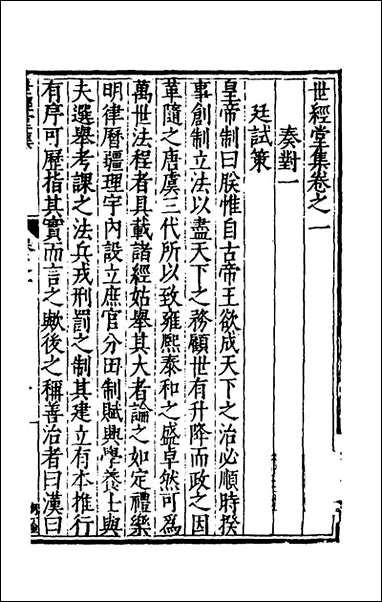 世經堂集卷之一
奏對一
廷試策
皇帝制曰朕惟自古帝王欲成天下之治必順時揆
事創制立法以盡天下之務顧世有升降而政之因
革隨之唐虞三代所以致雍熙泰和之盛卓然可為
萬世法程者具載諸經姑舉其大者論之如定禮樂
明律曆疆理宇內設立庶官分田制賦興學養士與
夫選舉考課之法兵戎刑罰之制其建立有本推行
有序可歷指其實而言之歟後之稱善治者曰漢曰